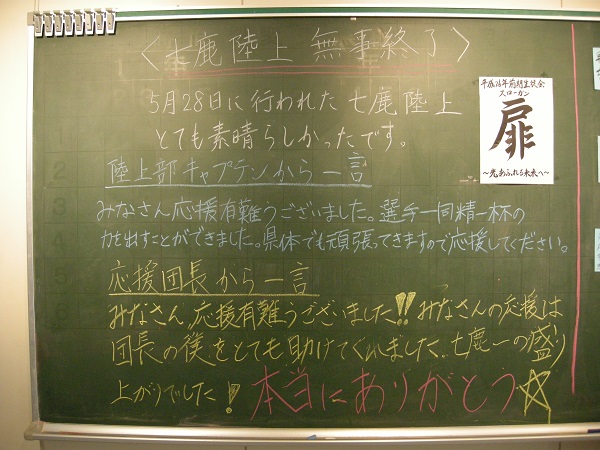 〈七鹿陸上 無事終了〉
5月28日に行われた七鹿陸上
とても素晴らしかったです。
陸上部キャプテンから一言
みなさん応援有難うございました。選手一同精一杯の
力を出すことができました。県体でも頑張ってきますので応援してください。
応援団長から一言
みなさん、応援有難うございました!!みなさんの応援は
団長の僕をとても助けてくれました。七鹿一の盛り
上がりでした!本当にありがとう☆
平成26年前期生徒会
スローガン
扉
〜光あふれる未来へ〜